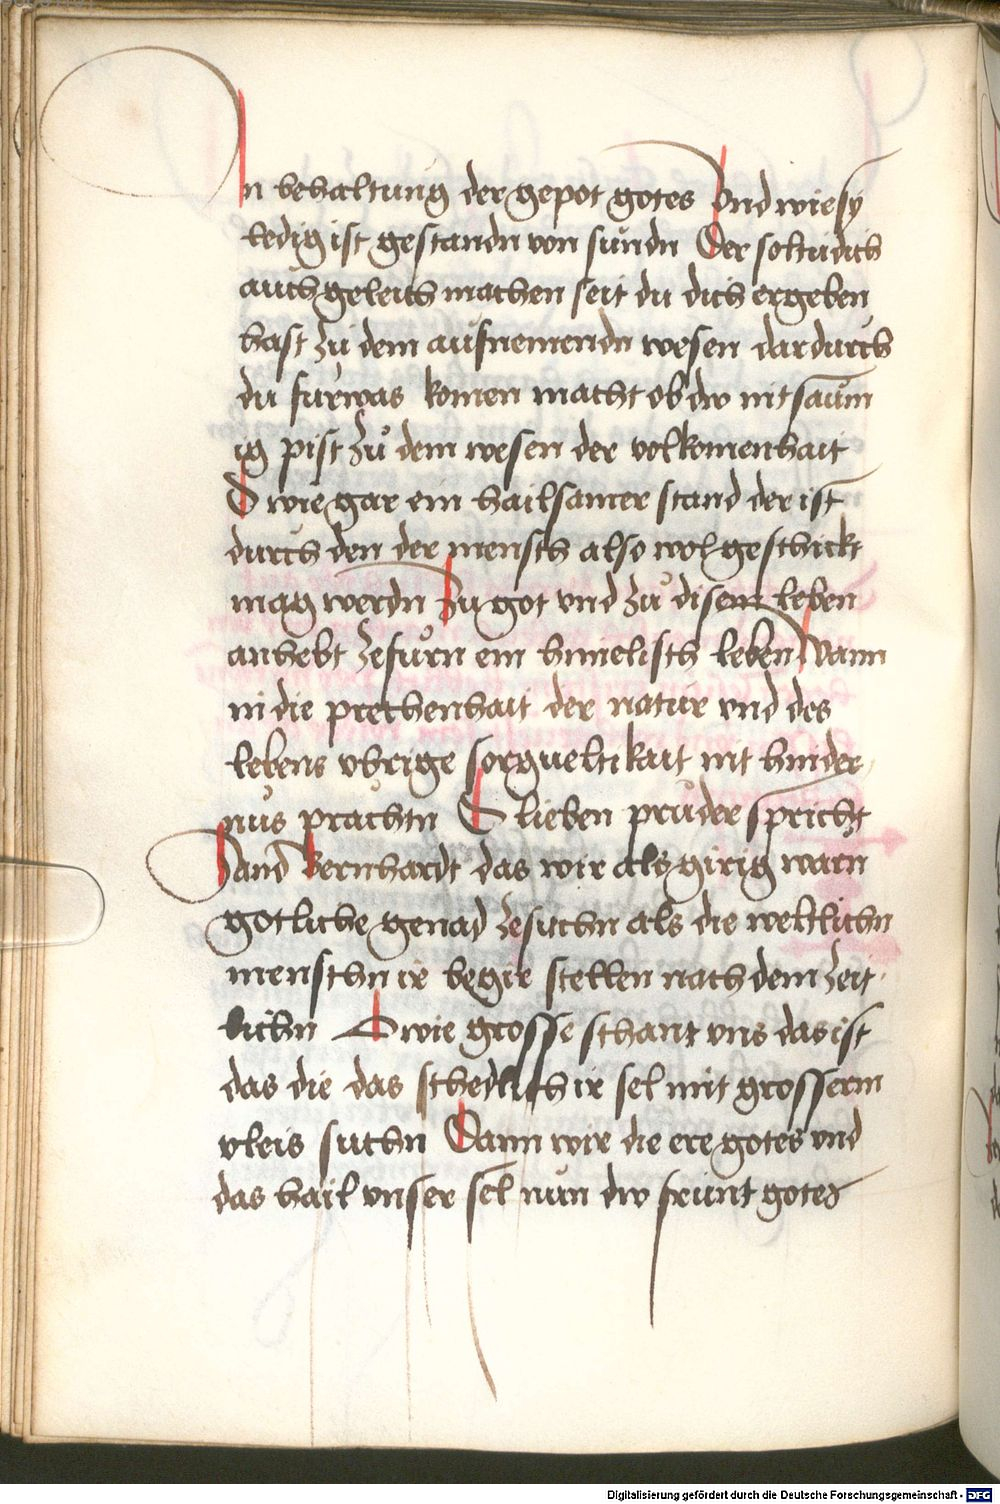 In behaltung der gepot gotes Vnd wie sy
ledig ist gestandn von sündn Der soltu dich
auch geleich machen seit du dich ergeben
hast zu dem aufnemendn wesen dardurch
du fürwas komen macht ob dw nit saum
ig pist zů dem wesen der volkomenhait
O wie gar ein hailsamer stand der ist
durch den der mensch also wol geschickt
mag werdn Zu got vnd zů disem leben
anhebt zefůrn ein himelisch leben Wann
in die prechenhait der natur vnd des
lebens vbrige sorgueltikait nit hinder
nüs prachtn O lieben prüder spricht
Sand Bernhardt das wir als girig warn
gotliche genad zesuchn als die weltlichn
menschn ir begir stellen nach dem zeit
lichn O wie grosse schant vns das ist
das die das schedlich ir sel mit grosserm
vleis suchn Dann wir die ere gotes vnd
das hail vnser sel nün dw frünt gotes
Digitalisierung gefördert durch die Deutsche Forschungsgemeinschaft - DFG